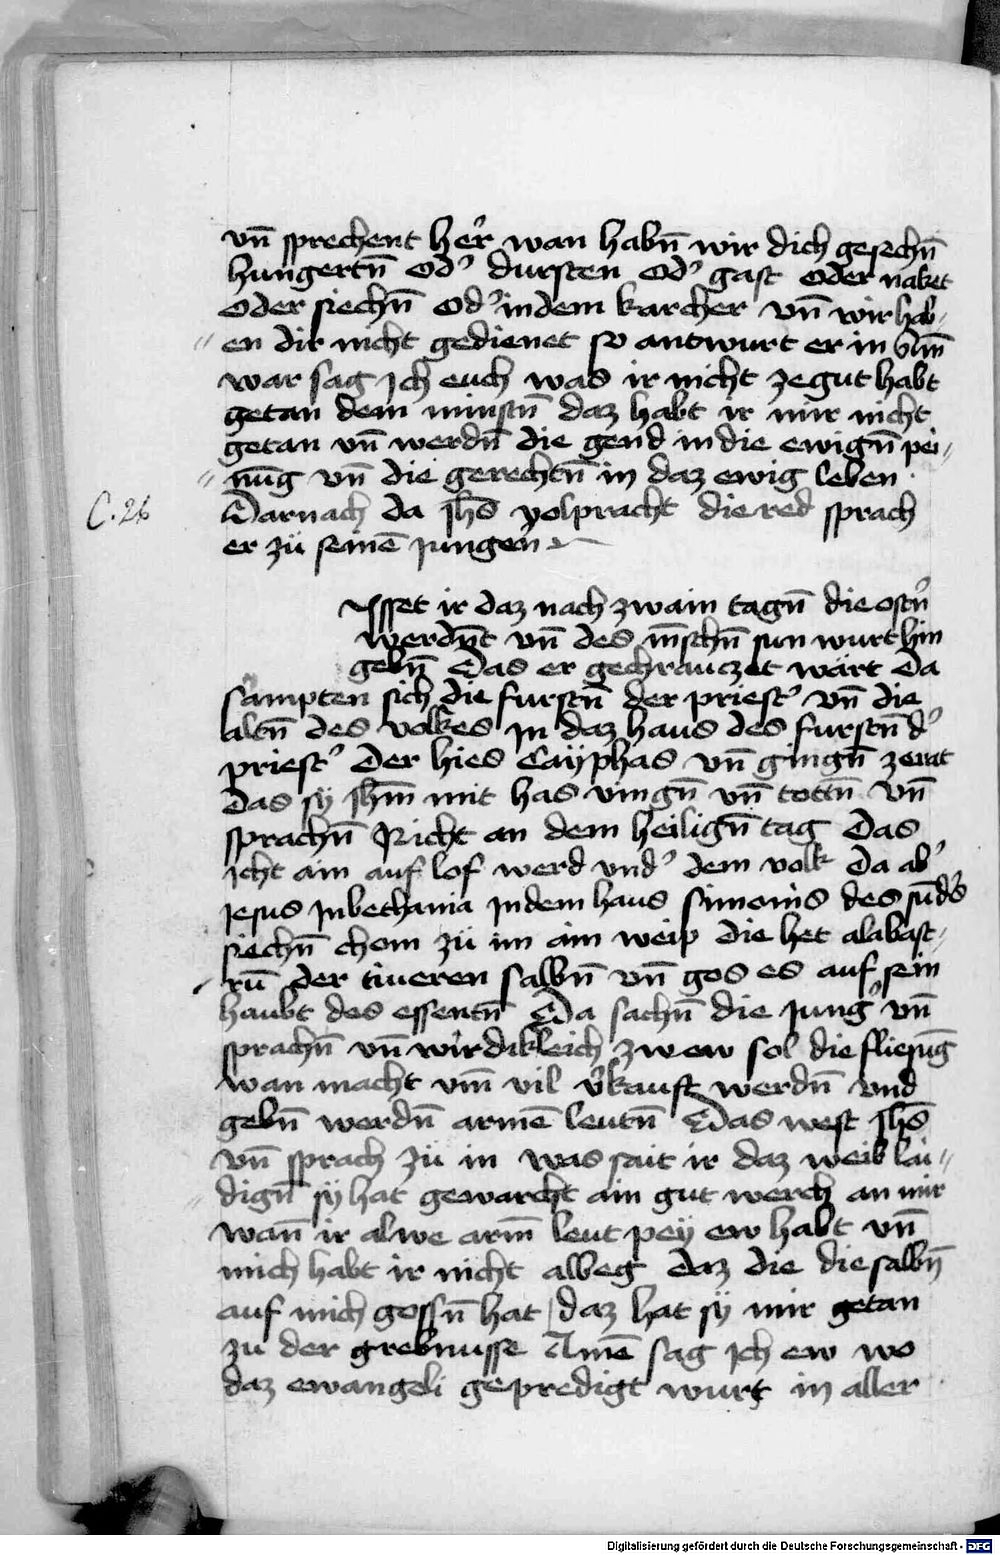 vn̄ sprechent her̉ wan habn̄ wir dich gesechn̄
hungertn̄ od̾ dursten od̾ gast oder naket
oder siechn̄ od̾ in dem karcher vn̄ wir hab-
en dir nicht gedienet so antwurt er in vnd̄
war sag Jch euch was ir nicht ze gut habt
getan dem minstn̄ daz habt ir mir nicht
getan vn̄ werdn̄ die gend in die ewign̄ pei-
nūg vn̄ die gerechtn̄ in daz ewig leben
C. 26
Darnach da Jhs̄ volpracht die red sprach
er zü seinē Jungern̉
Isset ir daz nach zwain tagn̄ die ostn̉
werdn̄t vn̄ des mn̄schn̄ sun wurt hin
gebn̄ Das er gechrauczet wart Da
sampten sich die furstn̄ der priest̾ vn̄ die
altn̄ des volkes Jn daz haus des furstn̄ d̾
priest̾ Der hies Cayphas vn̄ gingn̄ ze rat
Das sÿ Jhm̄ mit has vingn̄ vn̄ tottn̄ vn̄
sprachn̄ Nicht an dem heilign̄ tag Das
icht ain auf lof werd vnd̾ dem volk Da ab̾
Jesus Jn bethania Jn dem haus Simonis des
siechn̄ chom zü im ain weip die het alabast-
rū der tiueren salbn̄ vn̄ gos es auf sein
haubt des essentn̄ Da sachn̄ die Jung̉ vn̄
sprachn̄ vn̄wirdikleich zwew sol die fliesūg
wan macht vm̄ vil v̉kauft werdn̄ vnd
gebn̄ werdn̄ armē leutn̄ Das west Jhs̄
vn̄ sprach zü in was sait ir daz weib lai-
dign̄ sÿ hat gewarcht ain gut werch an mir
wan̄ ir alwe arm̄ leut peÿ ew habt vn̄
mich habt ir nicht albeg daz die die salbn̄
auf mich gossn̄ hat daz hat sÿ mir getan
zu der grebnusse Amē sag Jch ew wo
daz ewangeli gepredigt wurt in aller
Digitalisierung gefördert durch die Deutsche Forschungsgemeinschaft - DFG